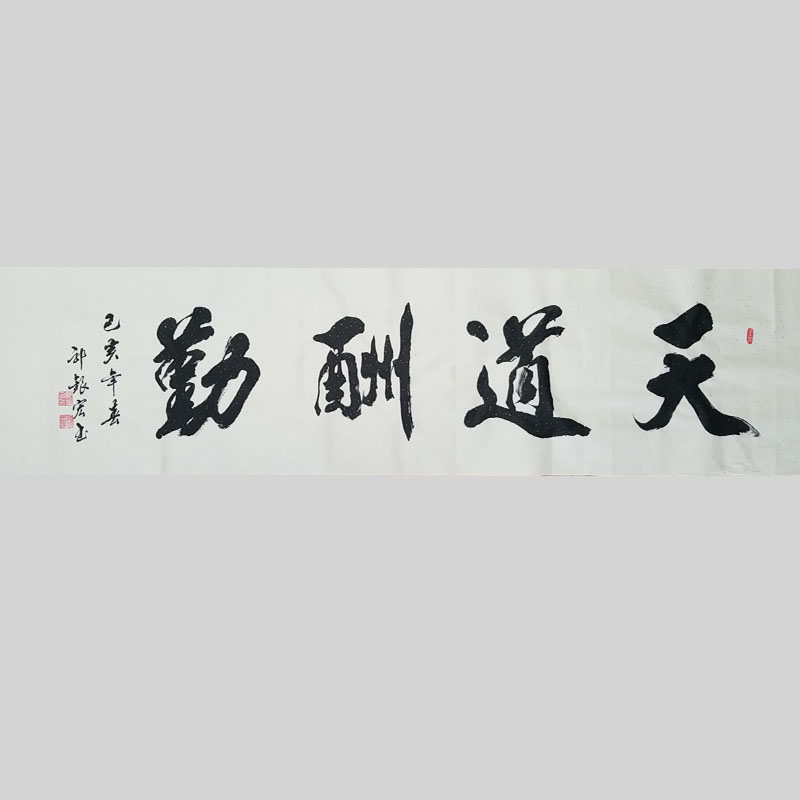 天道酬勤
己亥年春
郭银宏书